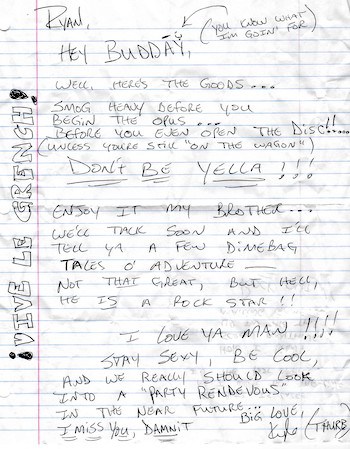 RYAN,
HEY BUDDAY,
(YOU KNOW WHAT
I'M GOIN' FOR)
WELL, HERE'S THE GOODS...
SMOG HEAVY BEFORE YOU
BEGIN THE OPUS...
BEFORE YOU EVEN OPEN THE DISC!!...
(UNLESS YOU'RE STILL "ON THE WAGON")
DON'T BE YELLA!!!
ENJOY IT MY BROTHER...
WE'LL TALK SOON AND I'LL
TELL YA A FEW DIMEBAG
TALES O' ADVENTURE —
NOT THAT GREAT, BUT HELL,
HE IS A ROCK STAR!!
I LOVE YA MAN!!!!
STAY SEXY, BE COOL,
AND WE REALLY SHOULD LOOK
INTO A "PARTY RENDEVOUS"
IN THE NEAR FUTURE...
I MISS YOU, DAMNIT
BIG LOVE,
Kyle (THURB)
¡VIVE LA GRENCH!